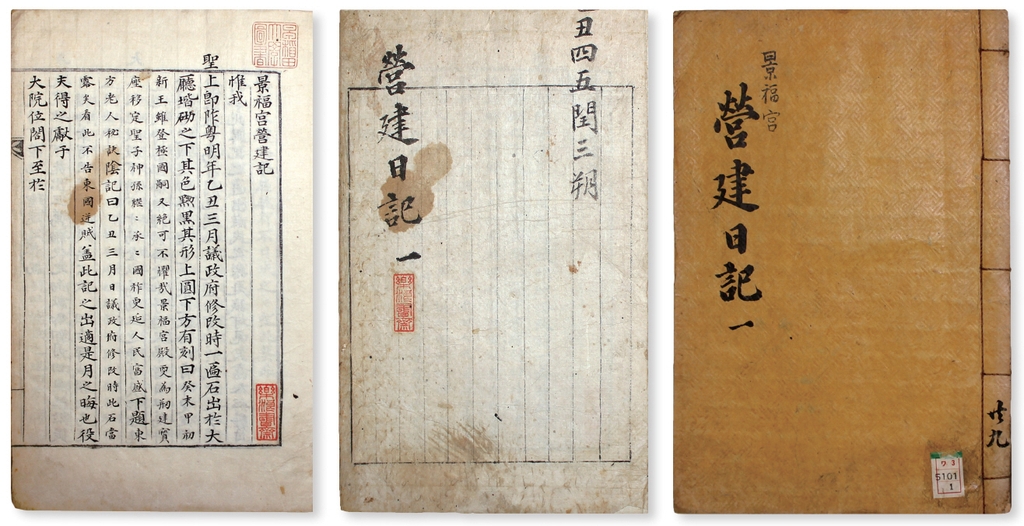 景福宮營建記
惟我
聖
上卽阼粤明年乙丑三月議政府修改時一區石出於大
廳堦砌之下其色黝黑其形上圓下方有刻曰癸未甲初
新王雖登極國嗣又絶可不懼哉景福宮殿更爲刱建寶
座移定聖子神孫繼〻承〻國祚更延人民富盛下題東
方老人秘訣陰記曰乙丑三月日議政府修改時此石當
露矣看此不告東國逆賊盖此記之出適是月之晦也役
夫得之獻于
大院位閤下至於
丑四五閏三朔
營建日記 一
景福宮
營建日記 一
共九
5101
1